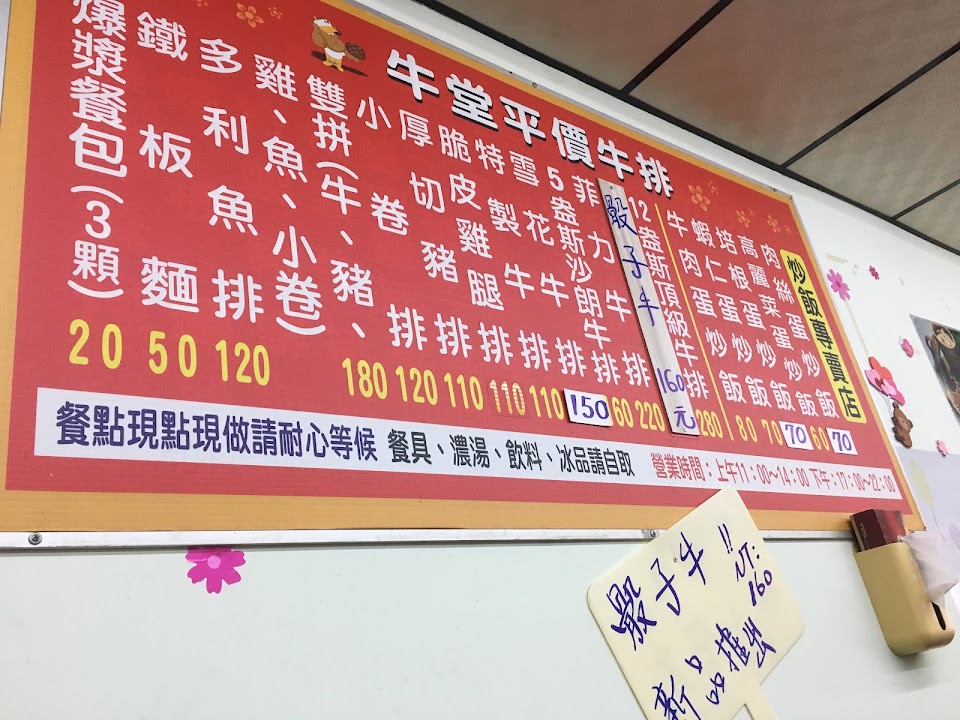 牛堂平價牛排
炒飯專賣店
肉絲蛋炒飯 70
高麗菜蛋炒飯 60
培根蛋炒飯 70
蝦仁蛋炒飯 70
牛肉蛋炒飯 80
12盎斯頂級牛排 280
骰子牛 160元
菲力牛排 220
5盎斯沙朗牛排 60
雪花牛排 150
特製牛排 110
脆皮雞腿排 110
厚切豬排 110
小卷排 120
雙拼(牛、豬、
雞、魚、小卷) 180
多利魚排 120
鐵板麵 50
爆漿餐包(3顆) 20
餐點現點現做請耐心等候 餐具、濃湯、飲料、冰品請自取 營業時間：上午11：00～14：00 下午：17：00～22：00
骰子牛!! NT:160
新品推出